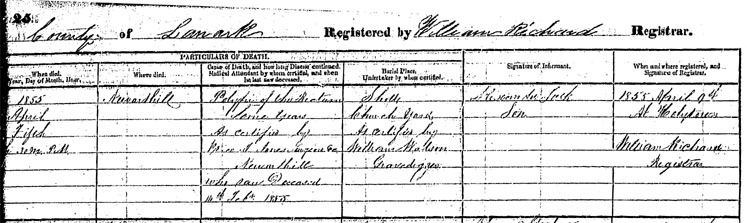 25
County of Lanark Registered by William Richard Registrar.
PARTICULARS OF DEATH.
When died. Year, Day of Month, Hour.
Where died.
Cause of Death, and how long Disease continued. Medical Attendant by whom certified, and when he last saw deceased.
Burial Place. Undertaker by whom certified.
Signature of Informant.
When and where registered, and Signature of Registrar.
1855 Newarthill Polypus of the Rectum Shotts Alexander Lock 1855 April 9th
April Some years Church Yard Son At Holytown
Fifth As certified by As certified by
P.M. Surgeon William Watson William Richard
Newarthill Gravedigger Registrar
who saw Deceased
Feb. 1855